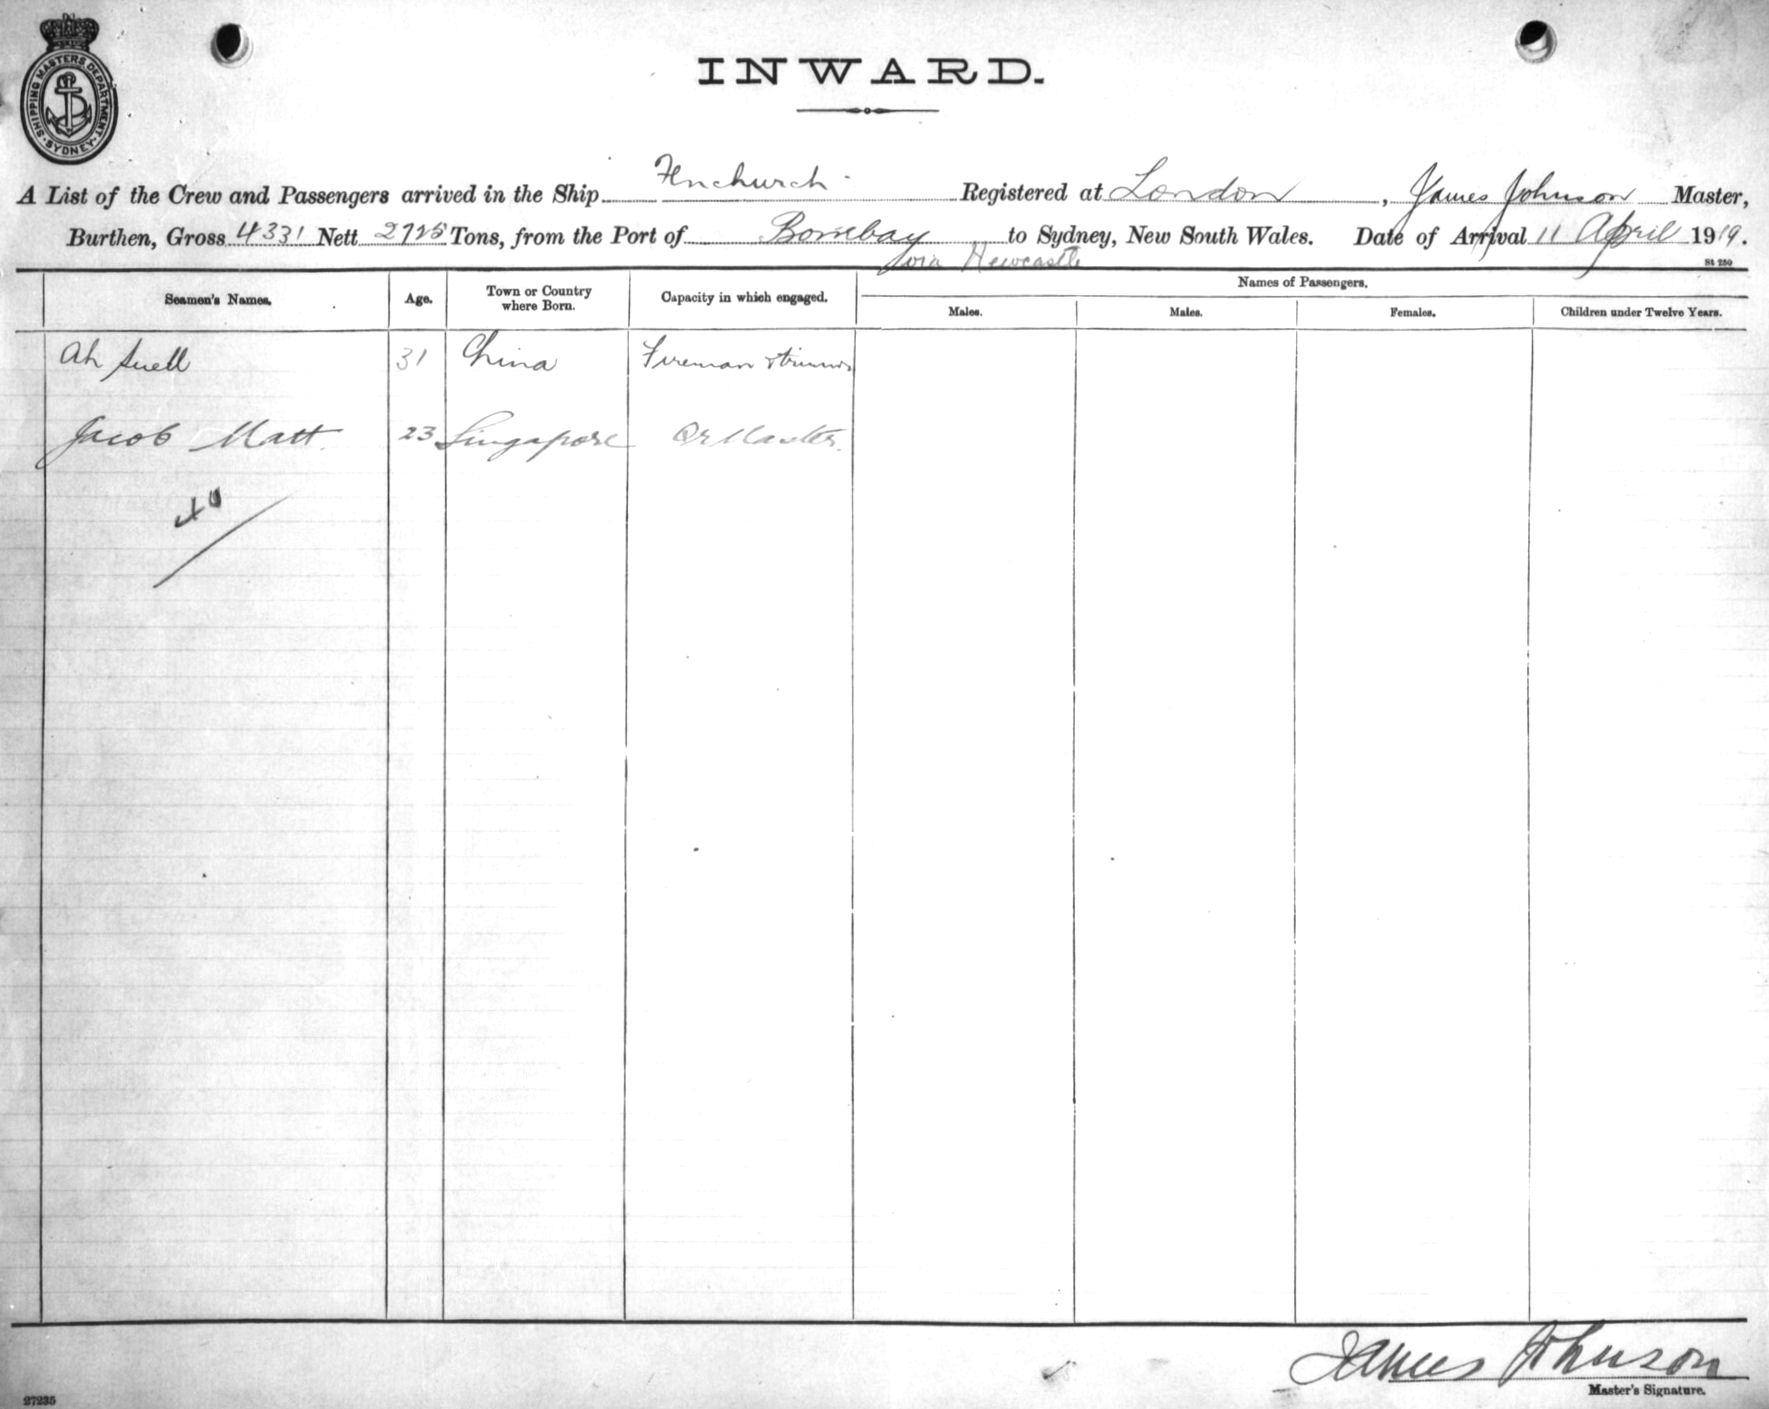 SHIPPING MASTERS DEPARTMENT
SYDNEY
INWARD.
A List of the Crew and Passengers arrived in the Ship Fenchurch Registered at London, James Johnson Master,
Burthen, Gross 4331 Nett 2725 Tons, from the Port of Bombay to Sydney, New South Wales. Date of Arrival 11 April 1919.
via Newcastle
St 250
Seamen's Names. Age. Town or Country where Born. Capacity in which engaged. Names of Passengers.
Males. Males. Females. Children under Twelve Years.
Ah Suell 31 China Fireman & trimmer
Jacob Matt 23 Singapore Qr Master.
James Johnson
Master's Signature.
27235